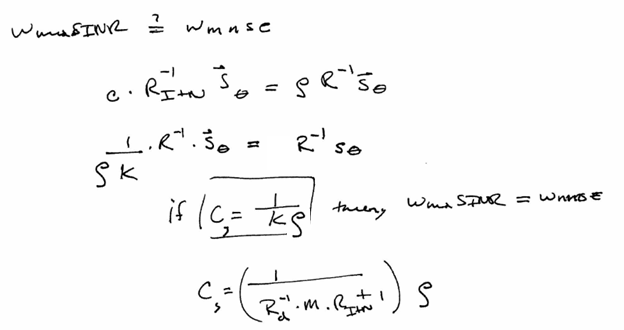 WmaxSINR ?= Wmmse
c · R_{I+N}^{-1} \vec{S}_θ = ρ R^{-1} \vec{S}_θ
\frac{1}{ρ K} · R^{-1} · \vec{S}_θ = R^{-1} s_θ
if C_s = \frac{1}{K} ρ then, WmaxSINR = Wmmse
C_s = ( \frac{1}{R_d^{-1} · m · R_{I+N} + 1} ) ρ